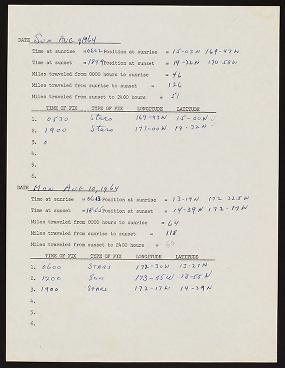 DATE Sun Aug 9, 1964
Time at sunrise = 0602 Position at sunrise = 15-03N 169-43W
Time at sunset = 1849 Position at sunset = 14-32N 170-58W
Miles traveled from 0000 hours to sunrise = 46
Miles traveled from sunrise to sunset = 126
Miles traveled from sunset to 2400 hours = 51
TIME OF FIX TYPE OF FIX LONGITUDE LATITUDE
1. 0530 Stars 169-43W 15-00N
2. 1900 Stars 171-00W
3. 0
4.
5.
6.
DATE Mon Aug 10, 1964
Time at sunrise Position at sunrise = 13-19N
Time at sunset Position at sunset = 14-39N
Miles traveled from 0000 hours to sunrise = 64
Miles traveled from sunrise to sunset = 118
Miles traveled from sunset to 2400 hours =
TIME OF FIX TYPE OF FIX LONGITUDE LATITUDE
1. 0600 Stars 172-30W 13-21N
2. 1200 Sun 173-55W 13-55N
3. 1900 Stars 172-17W 14-39N
4.
5.
6.